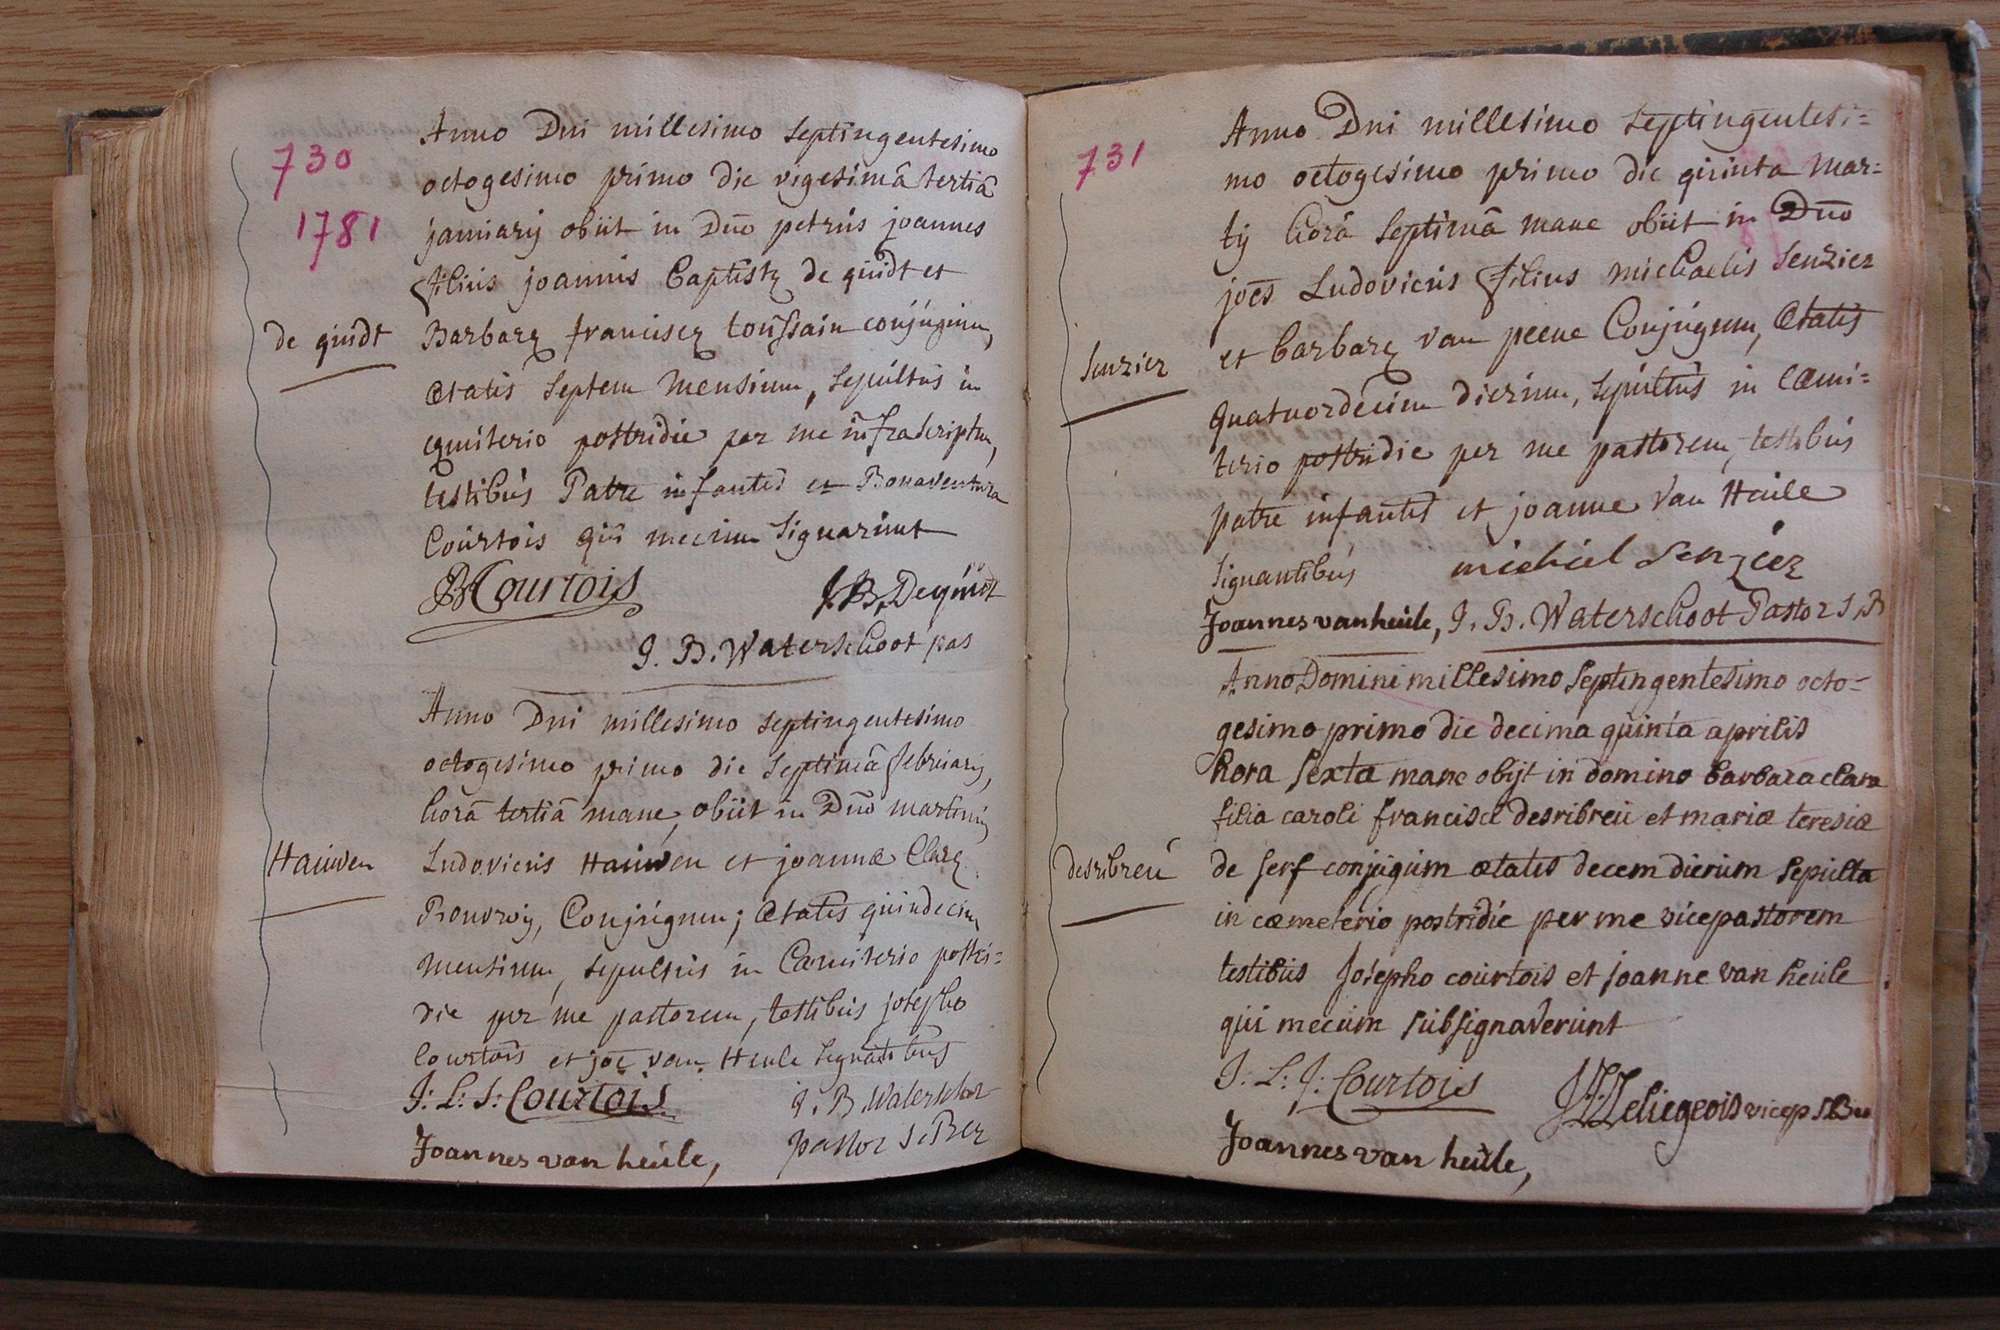 730
1781
Anno Dni millesimo septingentesimo
octogesimo primo die vigesimâ tertiâ
januarij obiit in Dno petrus joannes
filius joannis baptistę de quidt et
de quidt
Barbarę franciscę toussain conjugum,
ætatis septem mensium, sepultus in
cęmiterio postridie per me infrascriptum,
testibus Patre infantis et Bonaventura
Courtois qui mecum signarunt
B Courtois J. B. Dequidt
J. B. Waterschoot pas
Anno Dni millesimo septingentesimo
octogesimo primo die septimâ februarij,
horâ tertiâ mane, obiit in Dno martinus
Hauwen
Ludovicus Hauwen et joannæ Clarę
Conjugum, ætatis quindecim
mensium, sepultus in Cæmiterio postri=
die per me pastorem, testibus josepho
Courtois et joe van Heule signatibus
J: L: J: Courtois J. B. Waterschot
Joannes van heule, pastor
731
Anno Dni millesimo septingentesi=
mo octogesimo primo die quinta mar=
tij horâ septimâ mane obiit in Dno
joes Ludovicus filius michaelis Senziez
Senziez
et barbarę van peene Conjugum, ætatis
quatuordecim dierum, sepultus in cæmi=
terio postridie per me pastorem, testibus
patre infantis et joanne van Heule
signantibus michiel Senziez
Joannes van heule, J. B. Waterschoot Pastor S. B
Anno Domini millesimo septingentesimo octo=
gesimo primo die decima quinta aprilis
hora sexta mane obijt in domino barbara clara
filia caroli francisci desribreu et mariæ teresiæ
desribreu
de serf conjugum ætatis decem dierum sepulta
in cæmeterio postridie per me vicepastorem
testibus Josepho courtois et joanne van heule
qui mecum subsignaverunt
J: L: J: Courtois Leliegeois vicep
Joannes van heule,